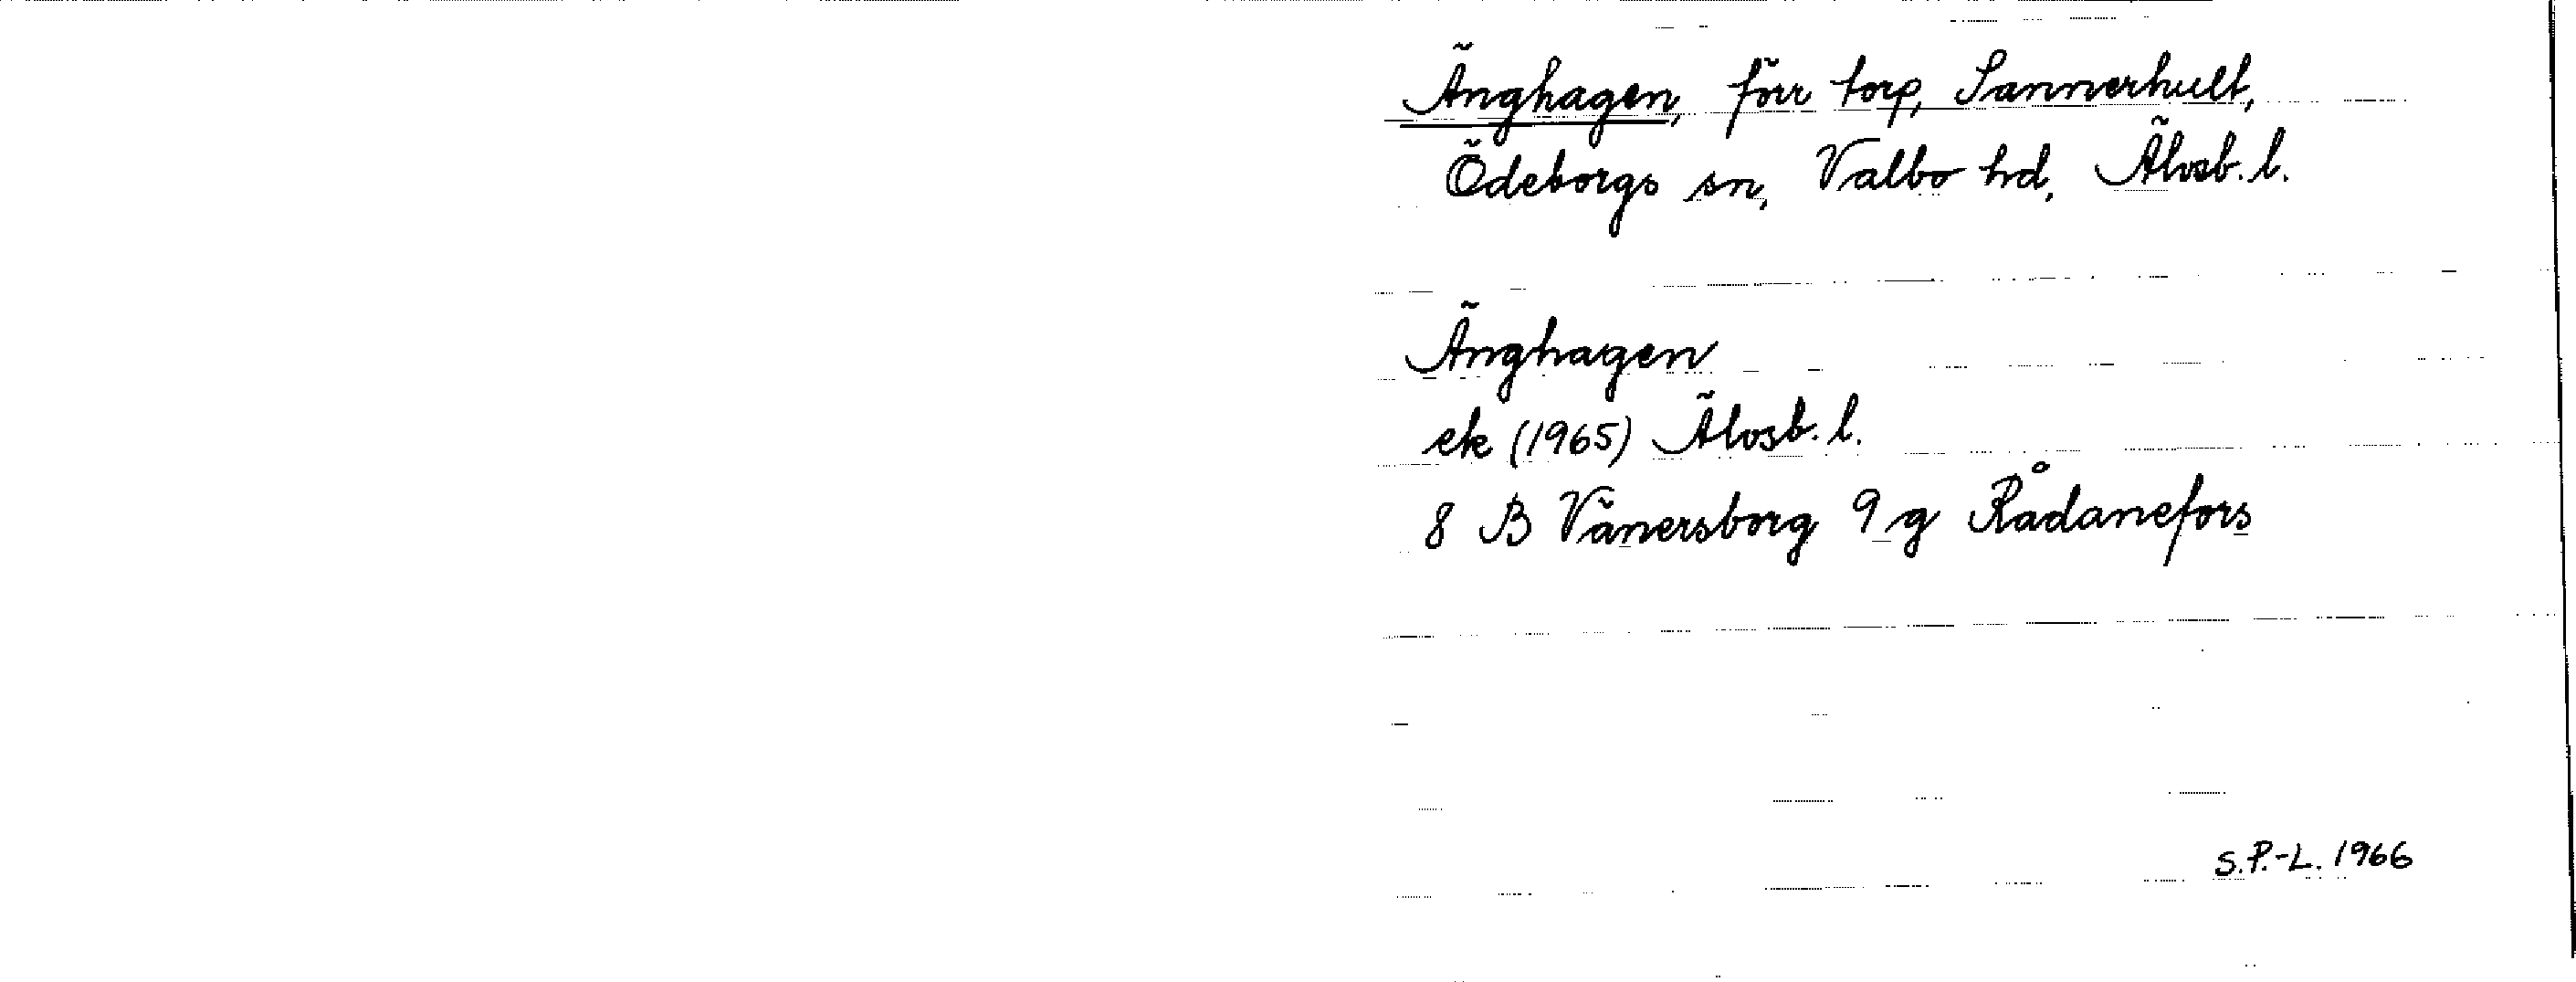 Änghagen, förr torp, Sannerhult,
Ödeborgs sn, Valbo hd, Älvsb. l.
Änghagen
ek (1965) Älvsb. l.
8 B Vänersborg 9 g Rådanefors
S.P.-L. 1966